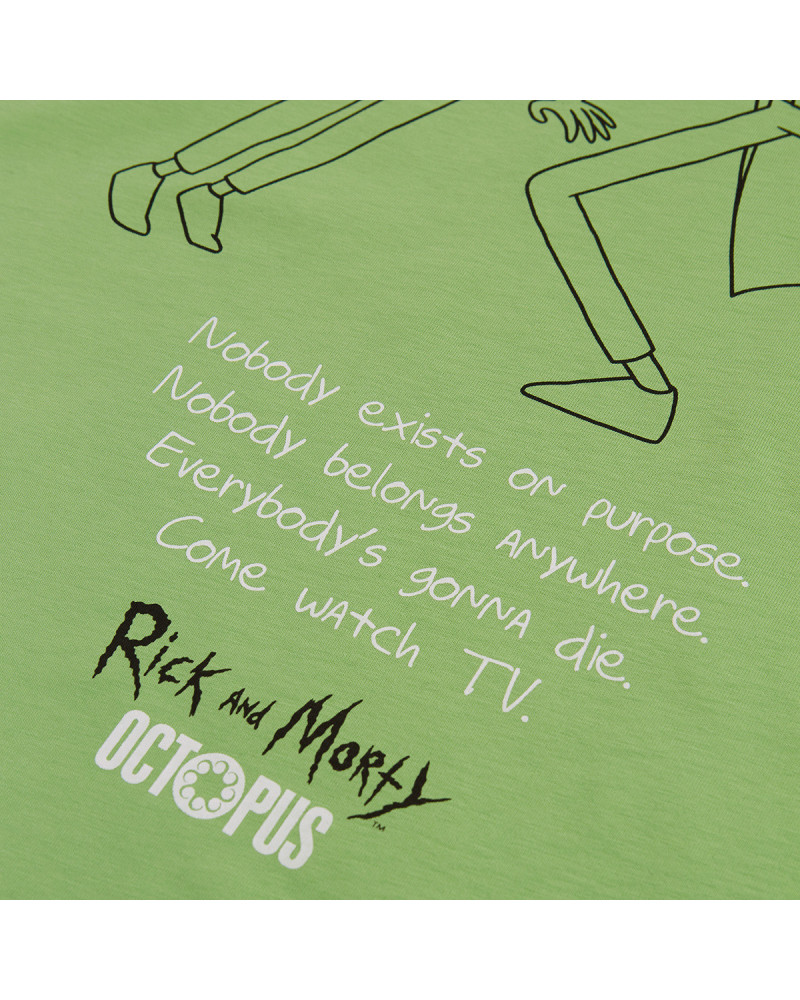 Nobody exists on purpose.
Nobody belongs anywhere.
Everybody's gonna die.
Come watch TV.
Rick and Morty™
OCTOPUS